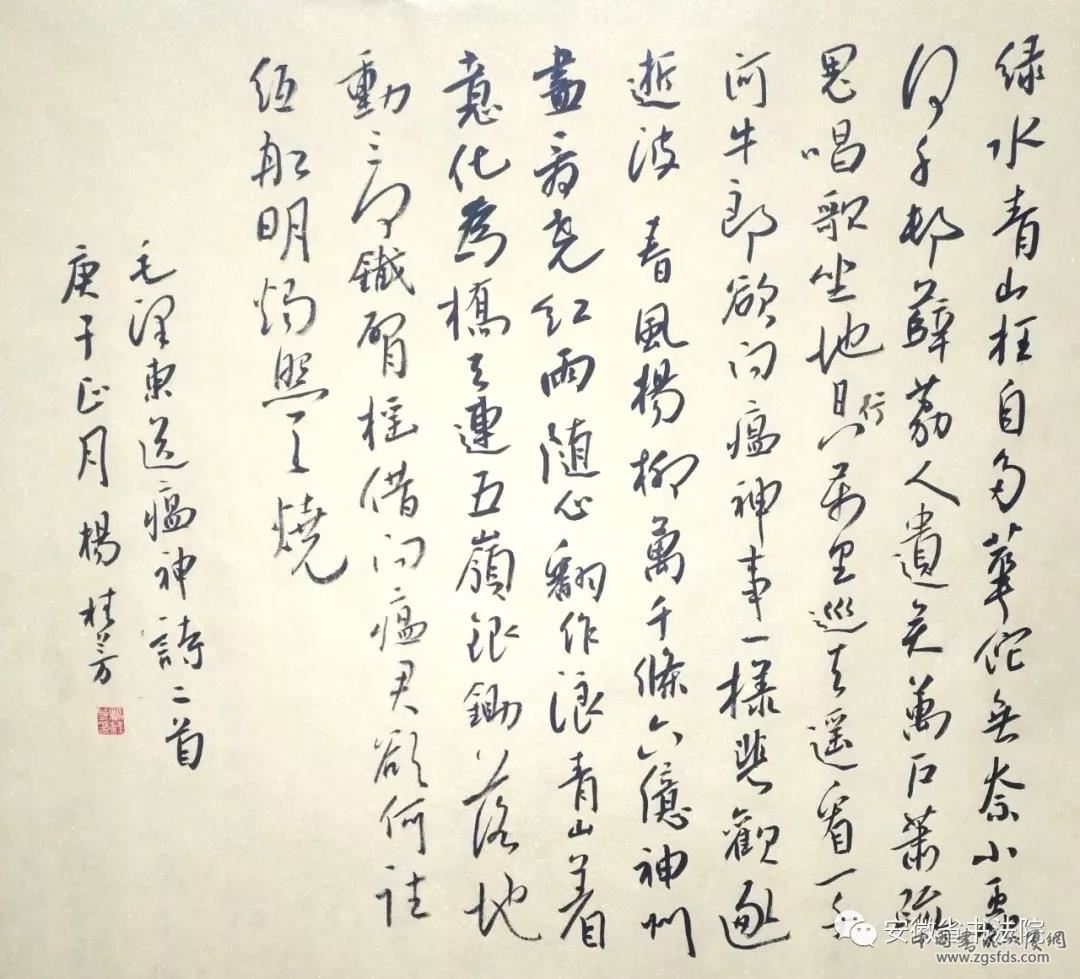 绿水青山枉自多華佗無奈小虫
何千邨薜荔人遺矢萬户萧疏
鬼唱歌坐地日行八万里巡天遥看一千
河牛郎欲问瘟神事一樣悲觀逐
逝波 春風楊柳萬千條六億神州
盡舜尧红雨随心翻作浪青山着
意化為橋天連五嶺銀鋤落地
動三河鐵臂摇借问瘟君欲何往
纸船明烛照天燒
毛泽東送瘟神詩二首
庚子正月 楊桂芳
安徽省书法院
www.zgsfds.com